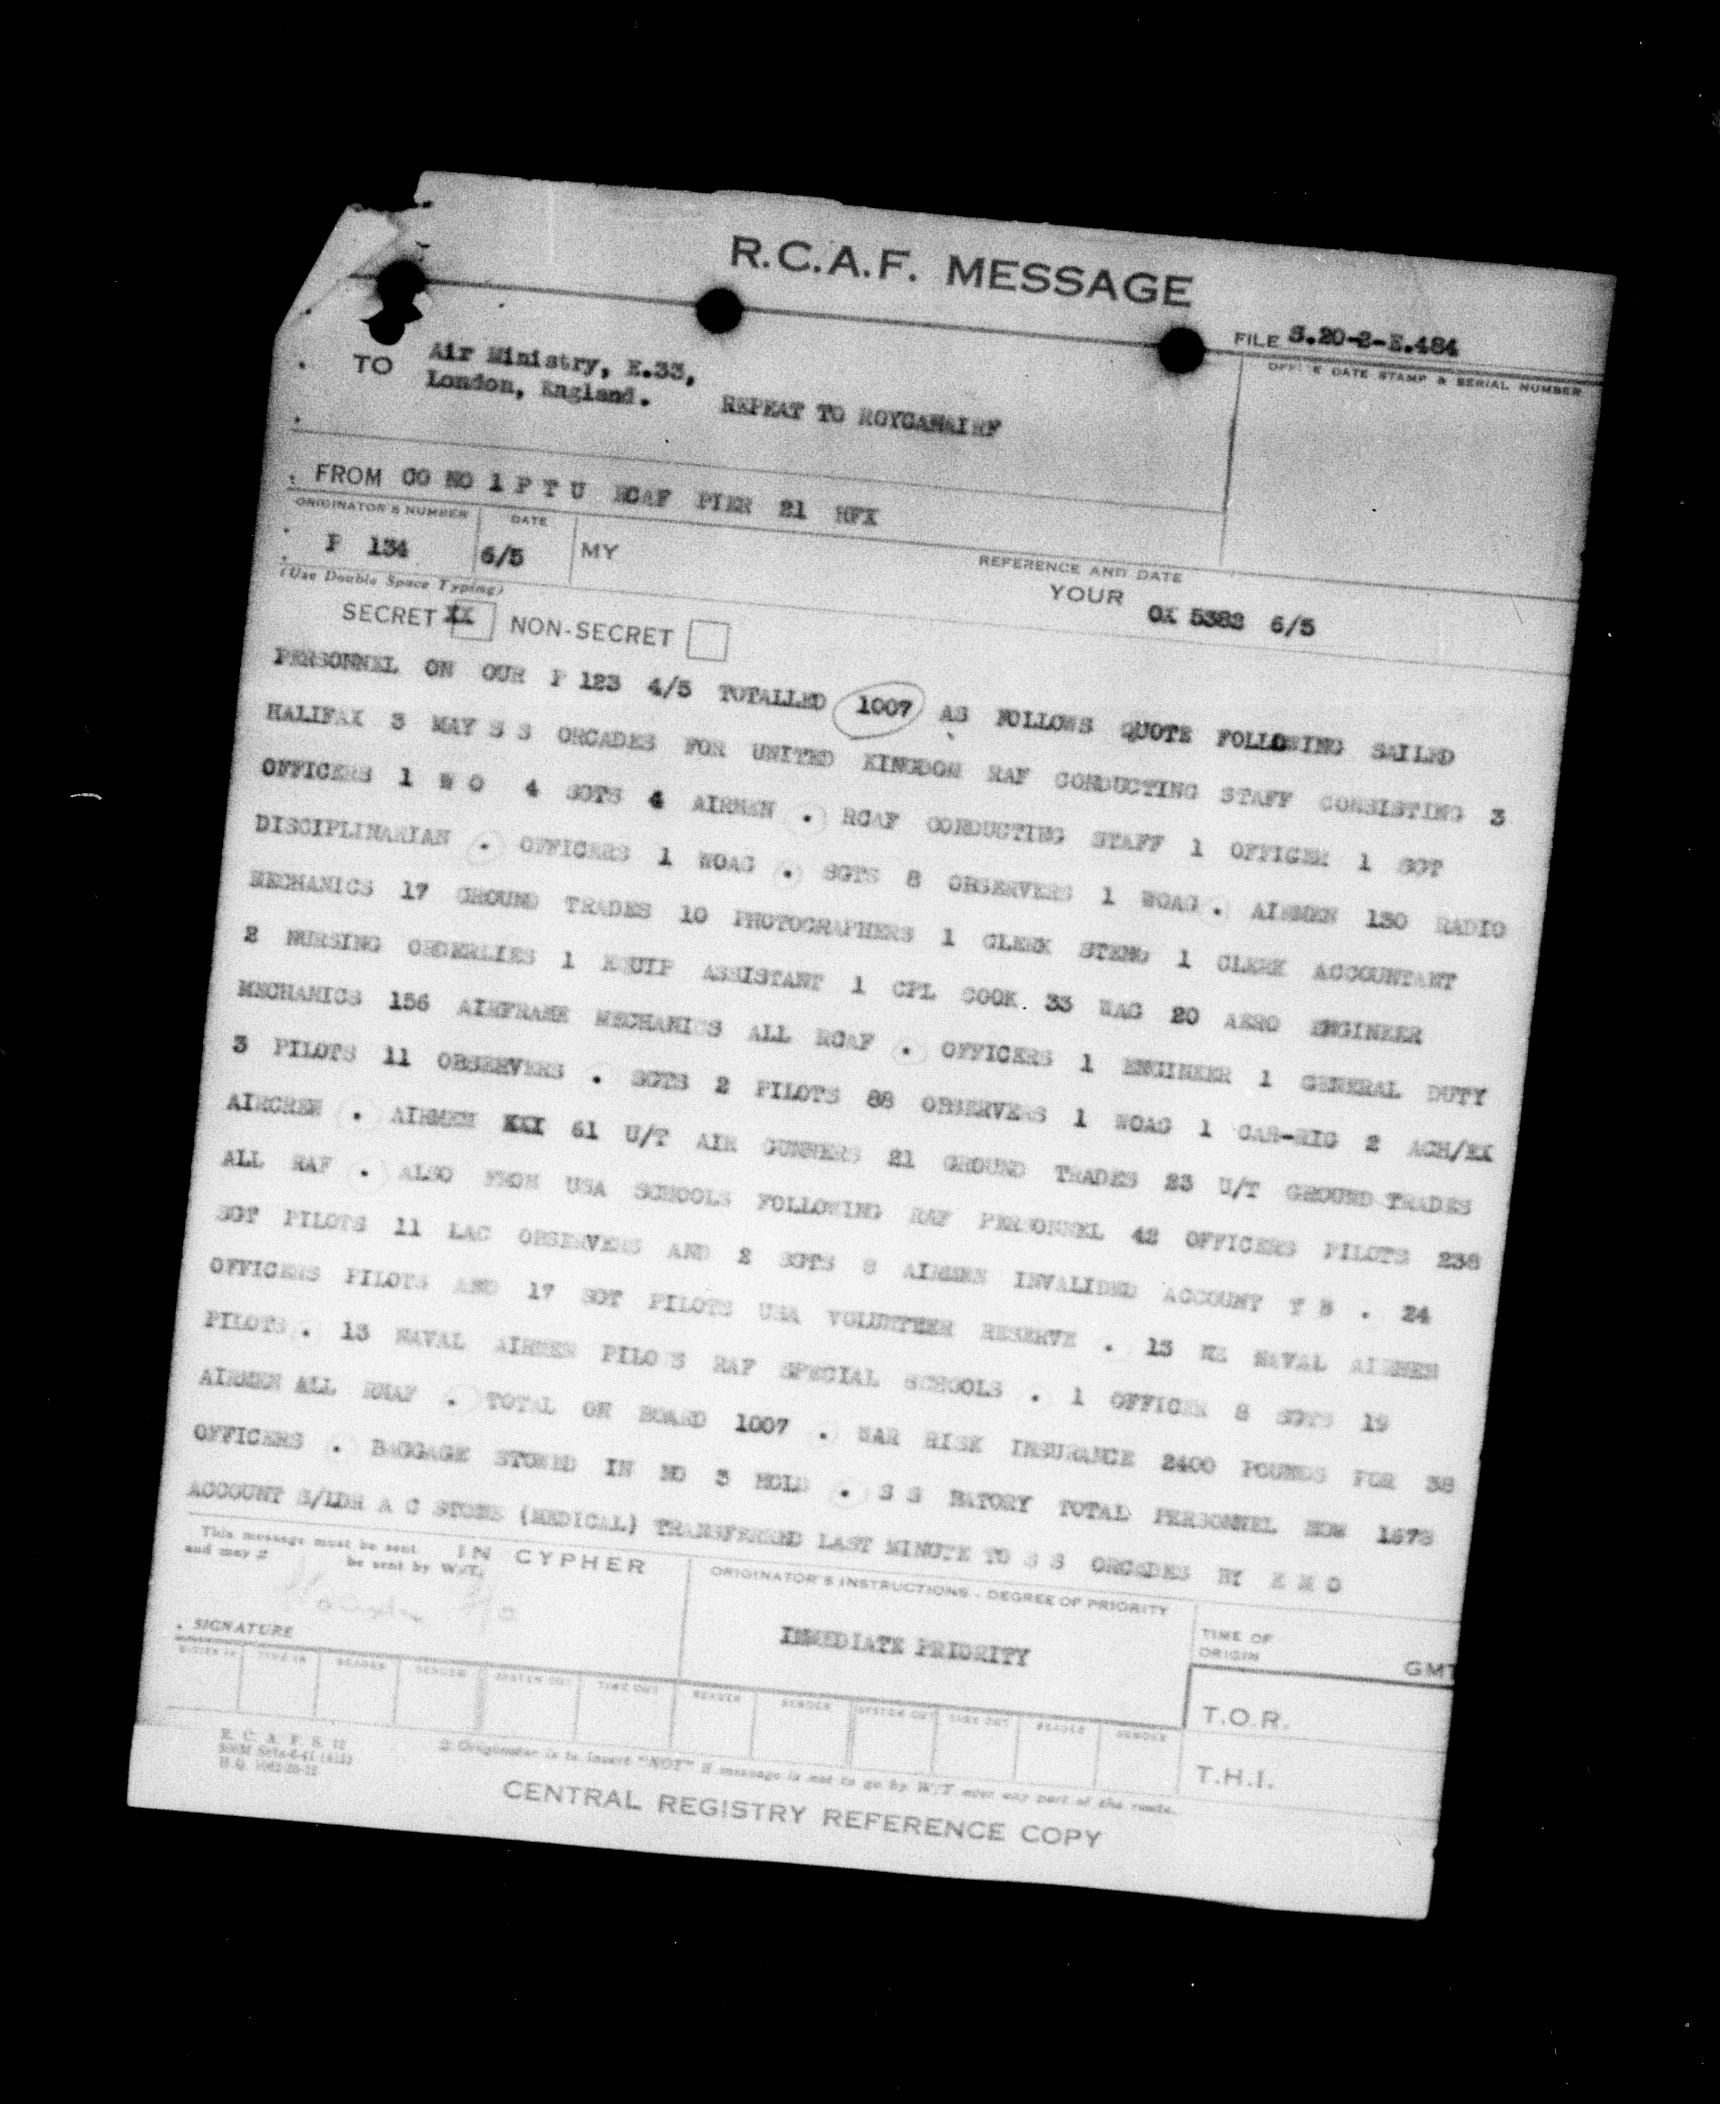 R.C.A.F. MESSAGE
FILE S.20-2-E.484
OFFICE DATE STAMP & SERIAL NUMBER
TO Air Ministry, E.33,
London, England. REPEAT TO ROYCANAIRF
FROM CO NO 1 P T U RCAF PIER 21 HFX
ORIGINATOR'S NUMBER DATE REFERENCE AND DATE
P 134 6/5 MY YOUR OX 5382 6/5
(Use Double Space Typing)
SECRET XX NON-SECRET
PERSONNEL ON OUR P 123 4/5 TOTALLED 1007 AS FOLLOWS QUOTE FOLLOWING SAILED
HALIFAX 3 MAY S S ORCADES FOR UNITED KINGDOM RAF CONDUCTING STAFF CONSISTING 3
OFFICERS 1 W O 4 SGTS 4 AIRMEN . RCAF CONDUCTING STAFF 1 OFFICER 1 SGT
DISCIPLINARIAN . OFFICERS 1 WOAG . SGTS 8 OBSERVERS 1 WOAG . AIRMEN 130 RADIO
MECHANICS 17 GROUND TRADES 10 PHOTOGRAPHERS 1 CLERK STENO 1 CLERK ACCOUNTANT
2 NURSING ORDERLIES 1 EQUIP ASSISTANT 1 CPL COOK. 33 WAG 20 AERO ENGINEER
MECHANICS 156 AIRFRAME MECHANICS ALL RCAF . OFFICERS 1 ENGINEER 1 GENERAL DUTY
3 PILOTS 11 OBSERVERS . SGTS 2 PILOTS 88 OBSERVERS 1 WOAG 1 CAR-RIG 2 ACH/EX
AIRCREW . AIRMEN XXX 61 U/T AIR GUNNERS 21 GROUND TRADES 23 U/T GROUND TRADES
ALL RAF . ALSO FROM USA SCHOOLS FOLLOWING RAF PERSONNEL 42 OFFICERS PILOTS 238
SGT PILOTS 11 LAC OBSERVERS AND 2 SGTS 8 AIRMEN INVALIDED ACCOUNT T B . 24
OFFICERS PILOTS AND 17 SGT PILOTS USA VOLUNTEER RESERVE . 13 NAVAL AIRMEN
PILOTS . 13 NAVAL AIRMEN PILOTS RAF SPECIAL SCHOOLS . 1 OFFICER 8 SGTS 19
AIRMEN ALL RNAF . TOTAL ON BOARD 1007 . WAR RISK INSURANCE 2400 POUNDS FOR 38
OFFICERS . BAGGAGE STOWED IN NO 3 HOLD . S S BATORY TOTAL PERSONNEL NOW 1673
ACCOUNT S/LDR A C STONE (MEDICAL) TRANSFERRED LAST MINUTE TO S S ORCADES BY E M O
This message must be sent IN CYPHER
and may # be sent by W/T.
ORIGINATOR'S INSTRUCTIONS - DEGREE OF PRIORITY
IMMEDIATE PRIORITY
TIME OF ORIGIN GMT
SIGNATURE
SYSTEM IN TIME IN READER SENDER SYSTEM OUT TIME OUT READER SENDER SYSTEM OUT TIME OUT READER SENDER
T.O.R.
T.H.I.
R. C. A. F. S. 12
# Originator is to insert "NOT" if message is not to go by W/T over any part of the route.
CENTRAL REGISTRY REFERENCE COPY